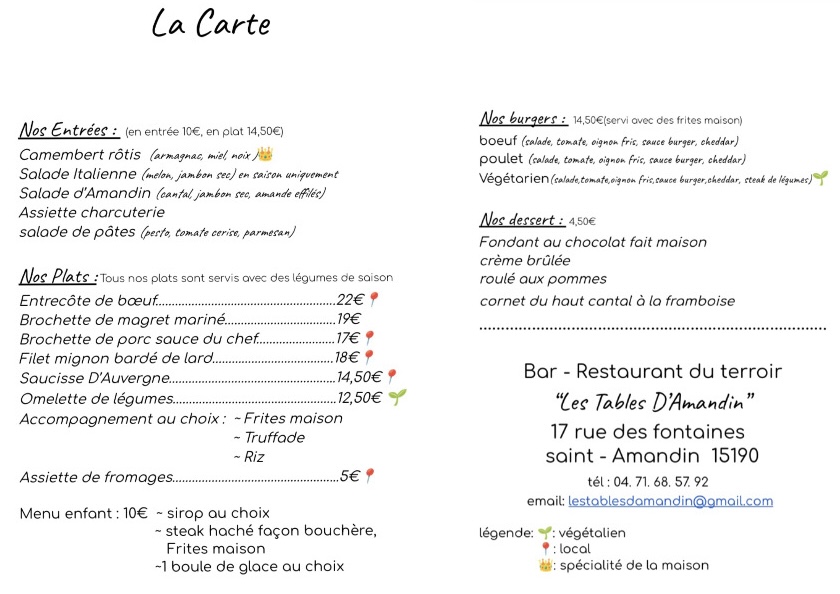 La Carte
Nos Entrées : (en entrée 10€, en plat 14,50€)
Camembert rôtis (armagnac, miel, noix )👑
Salade Italienne (melon, jambon sec) en saison uniquement
Salade d'Amandin (cantal, jambon sec, amande effilés)
Assiette charcuterie
salade de pâtes (pesto, tomate cerise, parmesan)
Nos Plats : Tous nos plats sont servis avec des légumes de saison
Entrecôte de bœuf.............................................22€📍
Brochette de magret mariné............................19€
Brochette de porc sauce du chef....................17€📍
Filet mignon bardé de lard...............................18€📍
Saucisse D'Auvergne..........................................14,50€📍
Omelette de légumes.........................................12,50€ 🌱
Accompagnement au choix : ~ Frites maison
~ Truffade
~ Riz
Assiette de fromages..........................................5€📍
Menu enfant : 10€ ~ sirop au choix
~ steak haché façon bouchère,
Frites maison
~1 boule de glace au choix
Nos burgers : 14,50€(servi avec des frites maison)
boeuf (salade, tomate, oignon fris, sauce burger, cheddar)
poulet (salade, tomate, oignon fris, sauce burger, cheddar)
Végétarien(salade,tomate,oignon fris,sauce burger,cheddar, steak de légumes)🌱
Nos dessert : 4,50€
Fondant au chocolat fait maison
crème brûlée
roulé aux pommes
cornet du haut cantal à la framboise
Bar - Restaurant du terroir
"Les Tables D'Amandin"
17 rue des fontaines
saint - Amandin 15190
tél : 04. 71. 68. 57. 92
email: lestablesdamandin@gmail.com
légende: 🌱: végétalien
📍: local
👑: spécialité de la maison